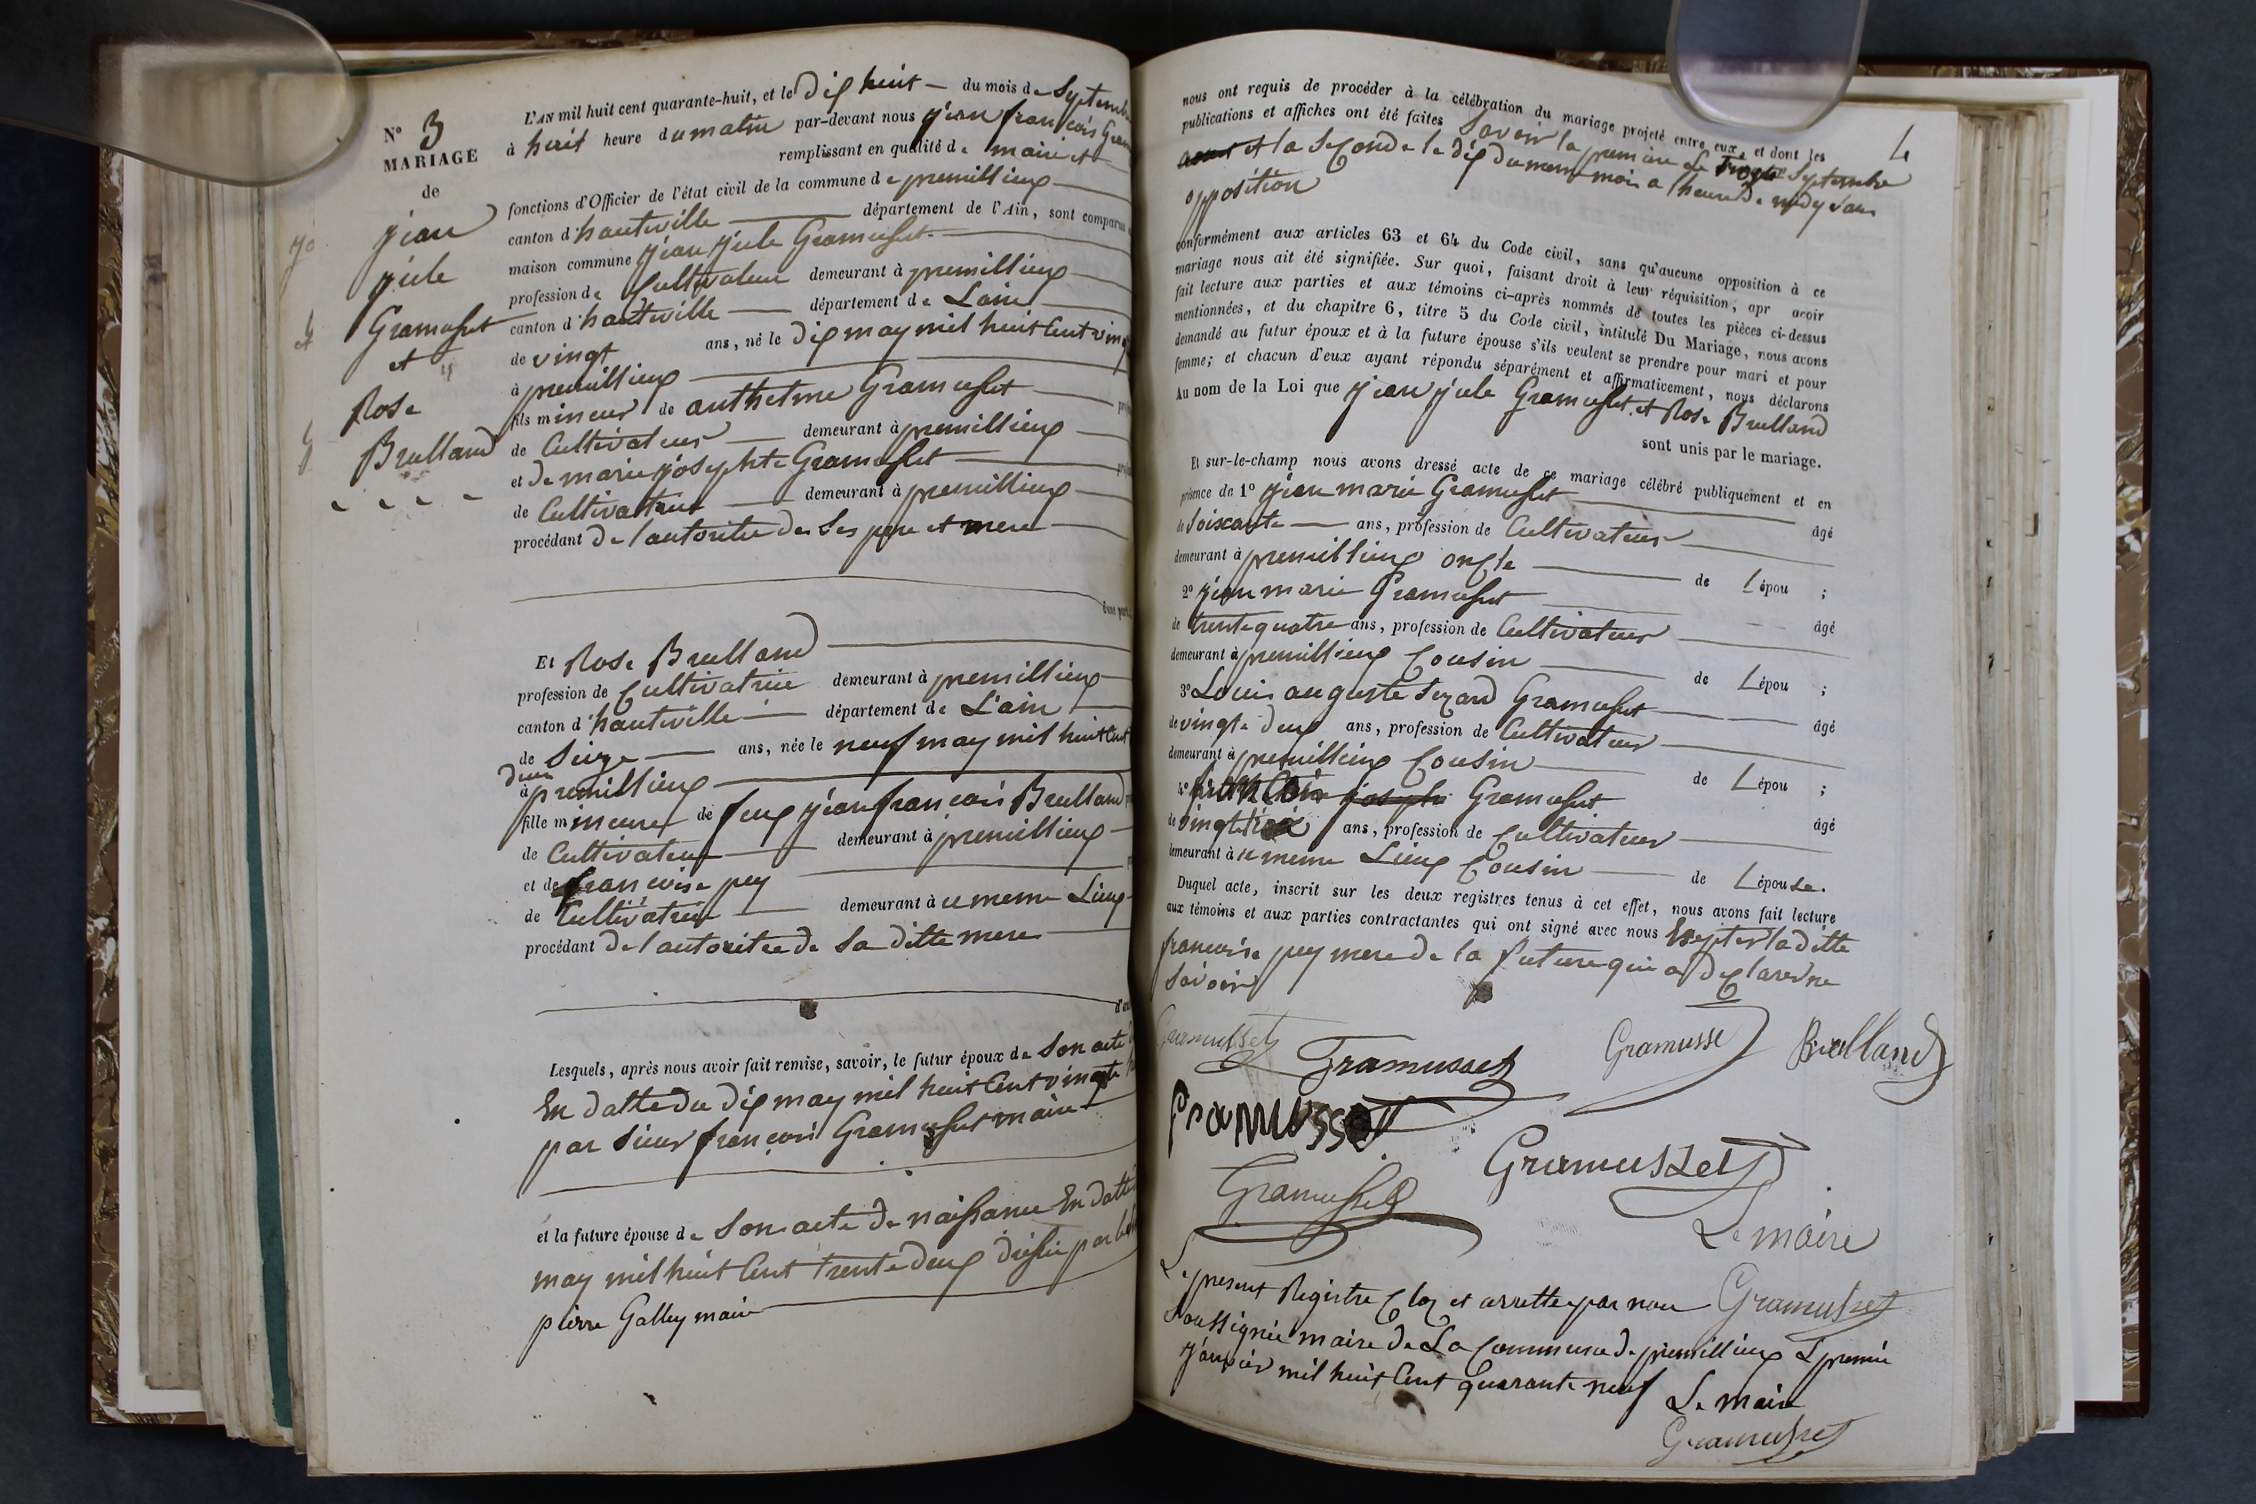 N° 3
MARIAGE
de
jean
jule
Gramusset
et
Rose
Brulland
L'AN mil huit cent quarante-huit, et le dix huit du mois de Septembre
à huit heure du matin par-devant nous jean françois Gram
remplissant en qualité de maire et
fonctions d'Officier de l'état civil de la commune de premillieux
canton d'hauteville département de l'Ain, sont comparus
maison commune jean jule Gramusset
profession de Cultivateur demeurant à premillieux
canton d'hauteville département de Lain
de vingt ans, né le dix may mil huit Cent vingt
à premillieux
fils mineur de anthelme Gramusset
de Cultivateur demeurant à premillieux
et de marie josephte Gramusset
de Cultivatrice demeurant à premillieux
procédant de l'autoritée des Ses pere et mere
d'une part
Et Rose Brulland
profession de Cultivatrice demeurant à premillieux
canton d'hauteville département de L'ain
de Seize ans, née le neuf may mil huit Cent
à premillieux
fille mineure de feux jean françois Brulland
de Cultivateur demeurant à premillieux
et de françoise pey
de Cultivatrice demeurant à ce meme Lieux
procédant de l'autoritée de Sa ditte mere
Lesquels, après nous avoir fait remise, savoir, le futur époux de Son acte
En datte du dix may mil huit Cent vingte
par Sieur françois Gramusset maire
et la future épouse de Son acte de naissance En datte
may mil huit Cent trente deux dressée par
pierre Galley maire
4
nous ont requis de procéder à la célébration du mariage projeté entre eux, et dont les
publications et affiches ont été faites Savoir la premiere Le Septembre
et la Seconde le dix du meme mois a l'heure de midy Sans
opposition
conformément aux articles 63 et 64 du Code civil, sans qu'aucune opposition à ce
mariage nous ait été signifiée. Sur quoi, faisant droit à leur réquisition, apr avoir
fait lecture aux parties et aux témoins ci-après nommés de toutes les pièces ci-dessus
mentionnées, et du chapitre 6, titre 5 du Code civil, intitulé Du Mariage, nous avons
demandé au futur époux et à la future épouse s'ils veulent se prendre pour mari et pour
femme; et chacun d'eux ayant répondu séparément et affirmativement, nous déclarons
Au nom de la Loi que jean jule Gramusset et Rose Brulland
sont unis par le mariage.
Et sur-le-champ nous avons dressé acte de ce mariage célébré publiquement et en
présence de 1° jean marie Gramusset âgé
de Soixante ans, profession de Cultivateur
demeurant à premillieux oncle de Lépou ;
2° jean marie Gramusset âgé
de trente quatre ans, profession de Cultivateur
demeurant à premillieux Cousin de Lépou ;
3° Louis auguste Gramusset âgé
de vingte deux ans, profession de Cultivateur
demeurant à premillieux Cousin de Lépou ;
4° joseph Gramusset âgé
de ans, profession de Cultivateur
demeurant à ce meme Lieux Cousin de Lépouse.
Duquel acte, inscrit sur les deux registres tenus à cet effet, nous avons fait lecture
aux témoins et aux parties contractantes qui ont signé avec nous Exepter la ditte
francoise pey mere de la future qui a declarer ne
Savoir
Gramusset
Gramusset
Gramusse
Brulland
Gramusset
Gramusset
Gramusset
Le maire
Gramusset
Le present Registre Clos et arrettee par nou
Soussignée maire de La Commune de premillieux L premier
janvier mil huit Cent quarante neuf Le maire
Gramusset